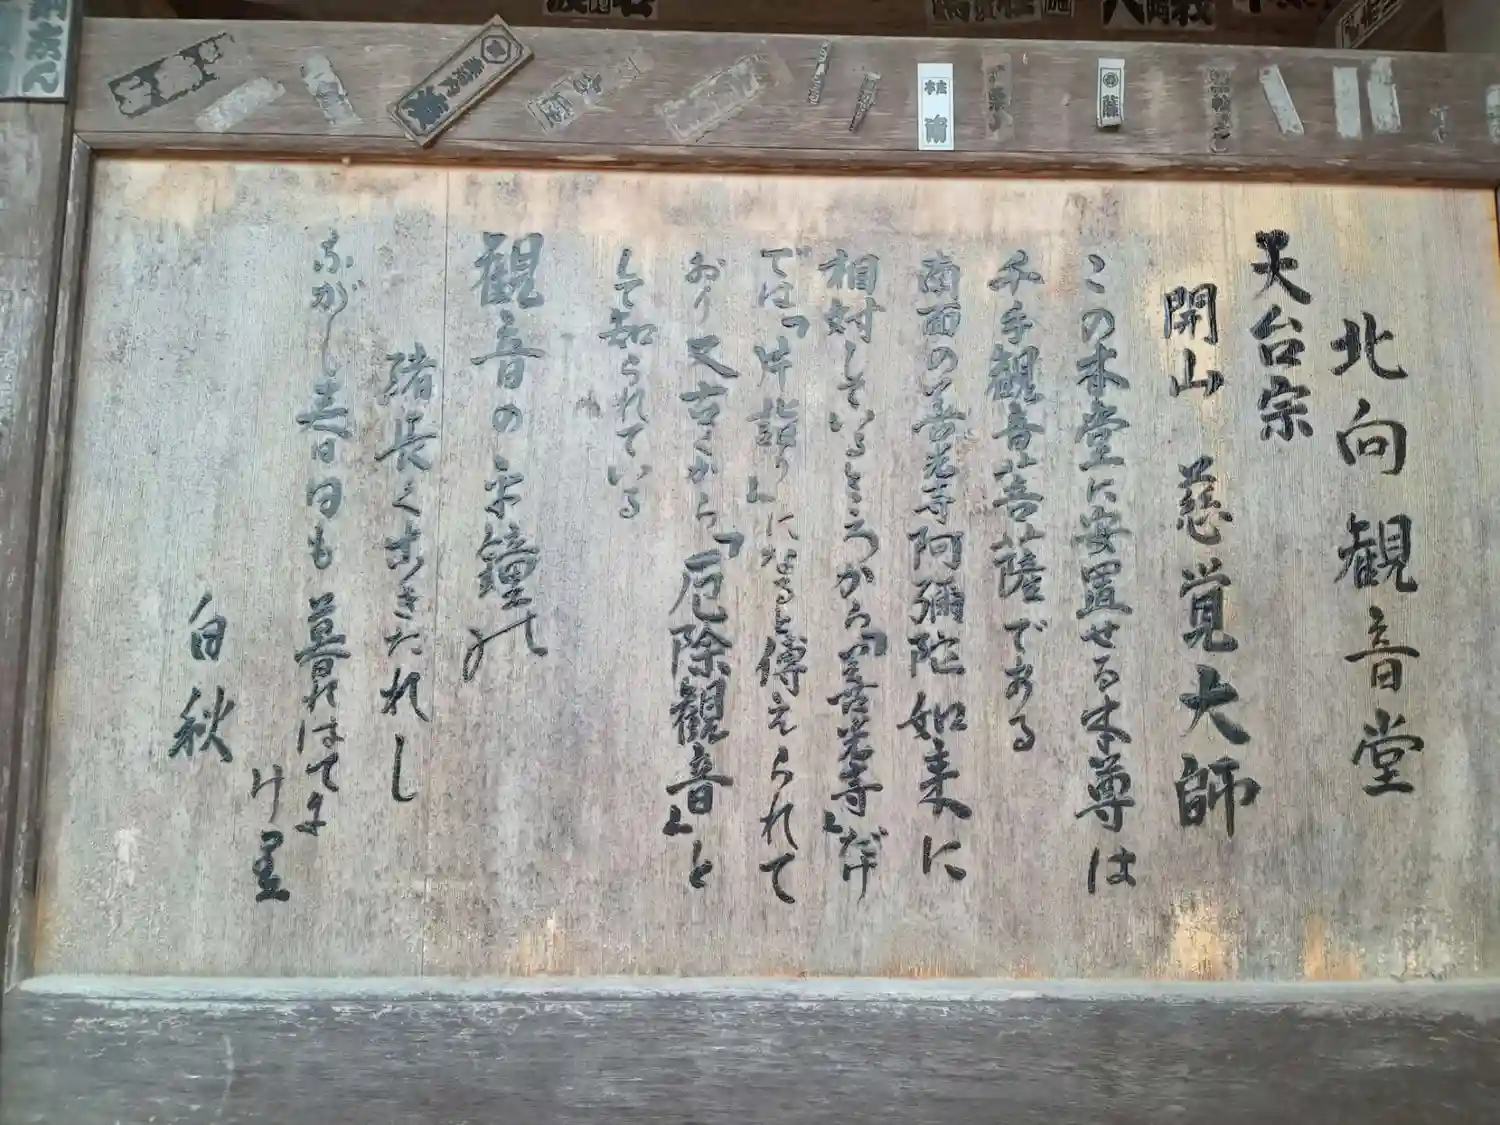 北向観音堂
天台宗
開山 慈覚大師
この本堂に安置せる本尊は
千手観音菩薩である
南面の善光寺阿彌陀如来に
相対しているところから「善光寺」だけ
では「片詣り」になると傳えられて
おり又古くから「厄除観音」と
して知られている
観音の 鐘の
緒長く きたれし
ながし春日も暮れはてに
け里
白秋